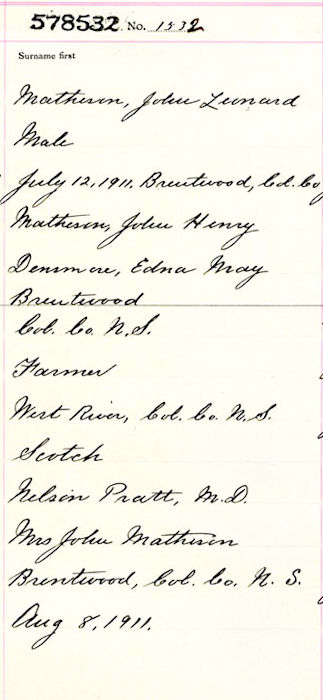 578532 No. 1532
Surname first
Matheson, John Leonard
Male
July 12, 1911. Brentwood, Col. Co
Matheson, John Henry
Densmore, Edna May
Brentwood
Col. Co. N.S.
Farmer
West River, Col. Co. N.S.
Scotch
Nelson Pratt, M.D.
Mrs John Matheson
Brentwood, Col. Co. N. S.
Aug 8, 1911.